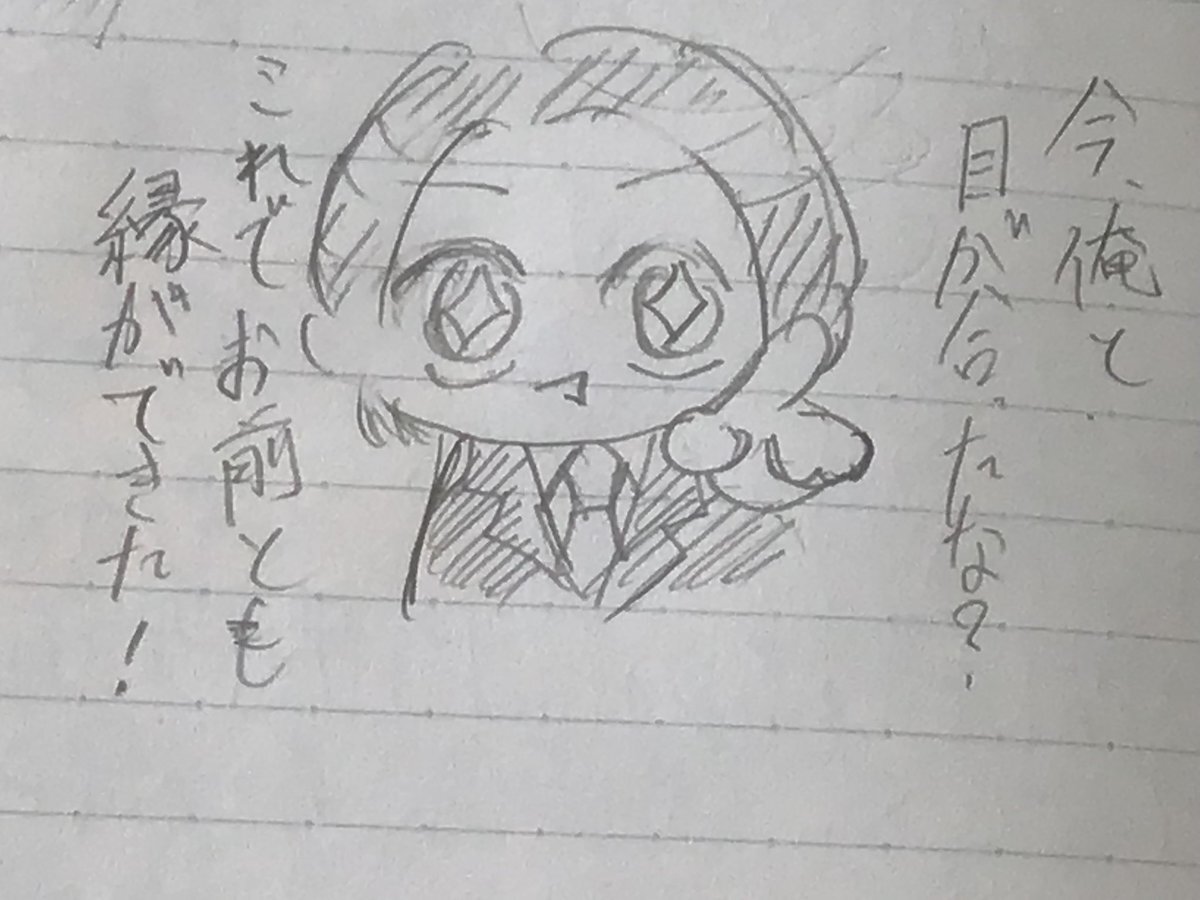 今、俺と
目が合ったな?
これでお前とも
縁ができた!